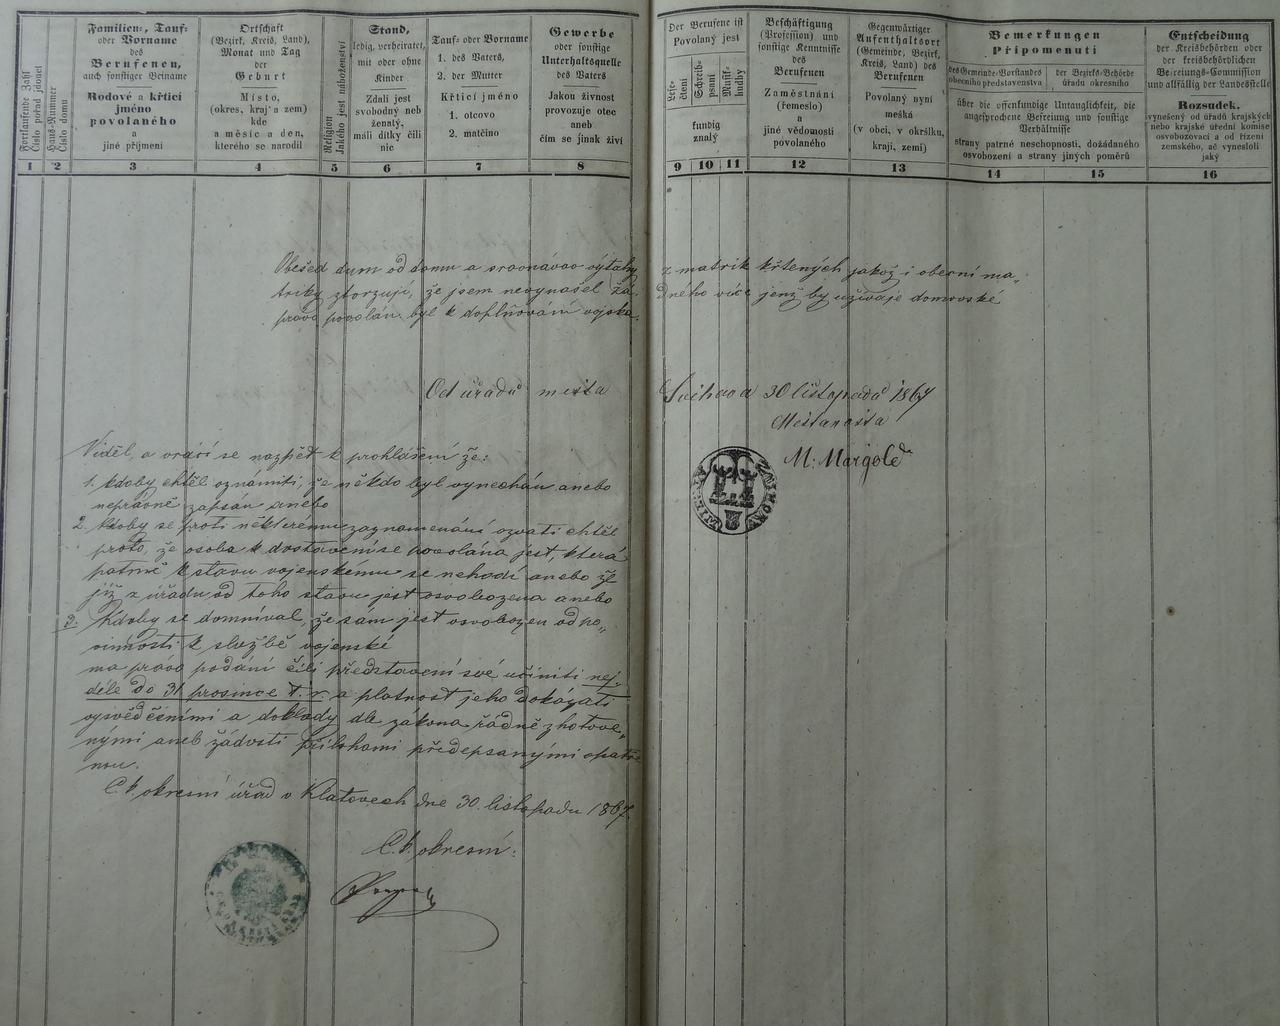 Fortlaufende Zahl
Číslo pořad jdoucí
Haus-Nummer
Číslo domu
Familien-, Tauf-
oder Vorname
des
Berufenen,
auch sonstiger Beiname
Rodové a křticí
jméno
povolaného
a
jiné příjmení
Ortschaft
(Bezirk, Kreis, Land),
Monat und Tag
der
Geburt
Místo,
(okres, kraj a zem)
kde
a měsíc a den,
kterého se narodil
Religion
Jakého jest náboženství
Stand,
ledig, verheiratet,
mit oder ohne
Kinder
Zdali jest
svobodný neb
ženatý,
máli dítky čili
nic
Tauf- oder Vorname
1. des Vaters,
2. der Mutter
Křticí jméno
1. otcovo
2. matčino
Gewerbe
oder sonstige
Unterhaltsquelle
des Vaters
Jakou živnost
provozuje otec
aneb
čím se jinak živí
Der Berufene ist
Povolaný jest
Lese-
čtení
Schreib-
psaní
Musik-
hudby
kundig
znalý
Beschäftigung
(Profession) und
sonstige Kenntnisse
des
Berufenen
Zaměstnání
(řemeslo)
a
jiné vědomosti
povolaného
Gegenwärtiger
Aufenthaltsort
(Gemeinde, Bezirk,
Kreis, Land) des
Berufenen
Povolaný nyní
mešká
(v obci, v okršku,
kraji, zemi)
Bemerkungen
Připomenutí
des Gemeinde-Vorstandes
obecního představenstva
der Bezirks-Behörde
úřadu okresního
über die offenkundige Untauglichkeit, die
angesprochene Befreiung und sonstige
Verhältnisse
strany patrné neschopnosti, dožádaného
osvobození a strany jiných poměrů
Entscheidung
der Kreisbehörden oder
der kreisbehördlichen
Befreiungs-Commission
und allfällig der Landesstelle
Rozsudek,
vynešený od úřadů krajských
nebo krajské úřední komise
osvobozovací a od řízení
zemského, ač vynesloli
jaký
1 2 3 4 5 6 7 8 9 10 11 12 13 14 15 16
Obešed dum od domu a srovnávav výtahy z matrik křtených jakož i obecní ma„
triky ztvrzuji, že jsem nevynašel žá- dného více jenž by užívaje domovské
právo povolán byl k doplňování vojska.
Od úřadu města Švihova 30 listopadu 1867
Měšťanosta
M: Margold
Viděl, a vrácí se nazpět k prohlášení že:
1. kdoby chtěl oznámiti, že někdo byl vynechán anebo
neprávně zapsán anebo
2. kdoby se proti některému zaznamenání ozvati chtěl
proto, že osoba k dostavení se povolána jest, která
patrně k stavu vojenskému se nehodí anebo že
již z úřadu od toho stavu jest osvobozena anebo
3. Kdoby se domníval, že sám jest osvobozen od po„
vinnosti k službě vojenské
má právo podání čili představení své učiniti nej„
déle do 31 prosince t. r. a platnost jeho dokázati
vysvědčeními a doklady dle zákona řádně zhotove„
nými aneb žádosti přílohami předepsanými opatře
nou.
C. k. okresní úřad v Klatovech dne 30. listopadu 1867.
C. k. okresní: